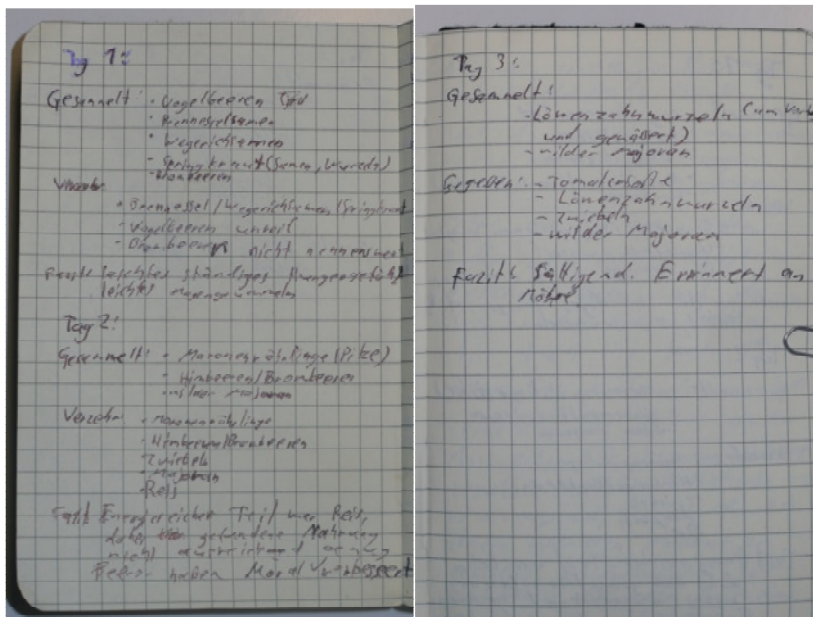 Tag 1:
Gesammelt: - Vogelbeeren
- Brennesselsamen
- Wegerichsamen
- Springkraut (Samen, Wurzeln)
- Brombeeren
Verzehr:
- Brennessel/Wegerichsamen/Springkraut
- Vogelbeeren unreif
- Brombeeren nicht nennenswert
Fazit: leichtes ständiges Hungergefühl
leichtes Magengrummeln
Tag 2:
Gesammelt: - Maronenröhrlinge (Pilze)
- Himbeeren/Brombeeren
- wilder Majoran
Verzehr: - Maronenröhrlinge
- Himbeeren/Brombeeren
Zwiebeln
- Majoran
- Reis
Fazit Energiereicher Teil war Reis,
daher gefundene Nahrung
nicht ausreichend genug
Beeren haben Moral verbessert
Tag 3:
Gesammelt:
- Löwenzahnwurzeln
und gewässert)
- wilder Majoran
Gegeben: - Tomatensoße
- Löwenzahnwurzeln
- Zwiebeln
- wilder Majoran
Fazit: Sättigend. Erinnert an
Möhre.